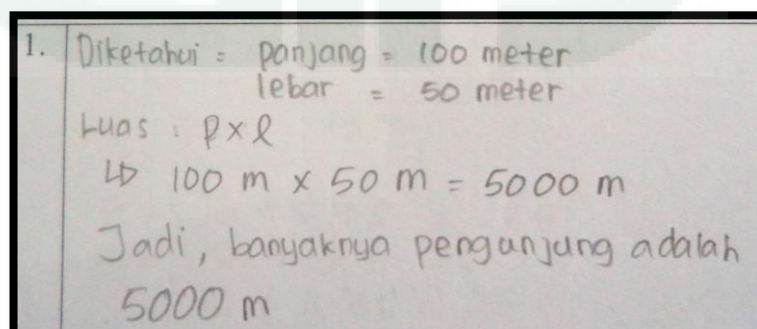 1. Diketahui = panjang = 100 meter
lebar = 50 meter
Luas : p x l
↳ 100 m x 50 m = 5000 m
Jadi, banyaknya pengunjung adalah
5000 m